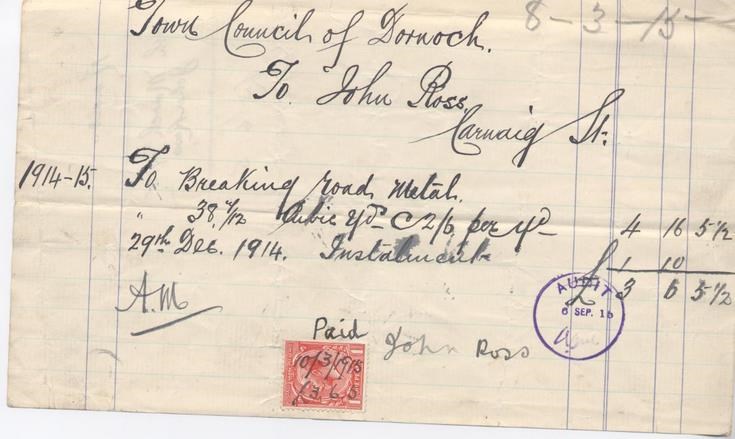 8-3-15
Town Council of Dornoch.
To John Ross
Carnaig St.
1914-15. To Breaking road Metal.
" 38 7/12 Cubic Yds @ 2/6 per Yd 4 16 5 1/2
29th Dec. 1914. Instalment 1 10
£ 3 6 5 1/2
A.M
AUDIT
6 SEP. 15
Paid John Ross
10/3/1915
£3 6 5